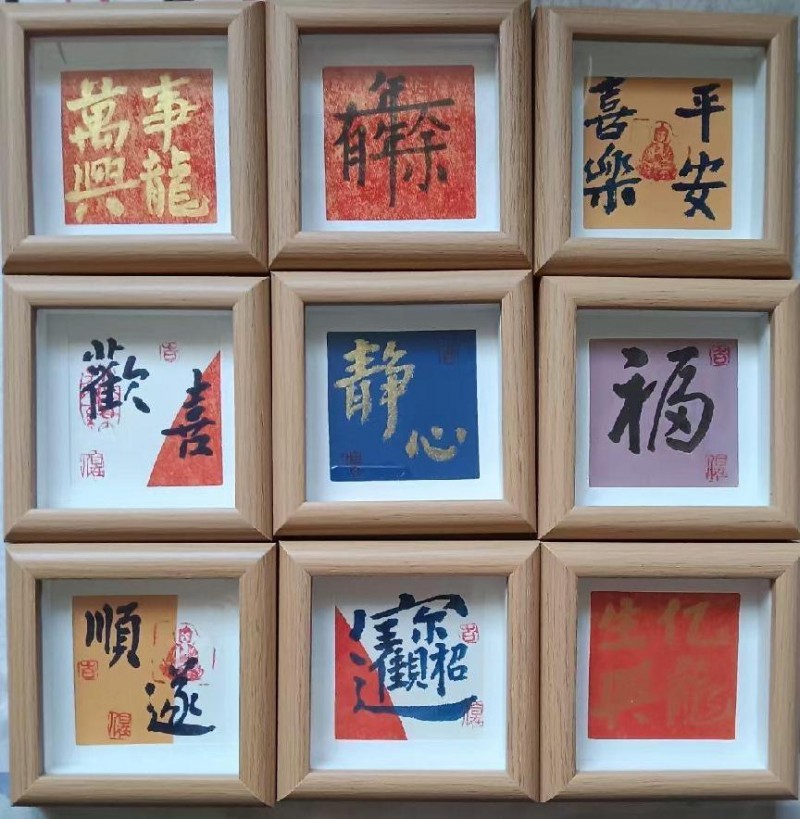 萬事
興龍
年年有余
平安
喜樂
歡喜
静心
福
順遂
招財進寶
生亿
興龍